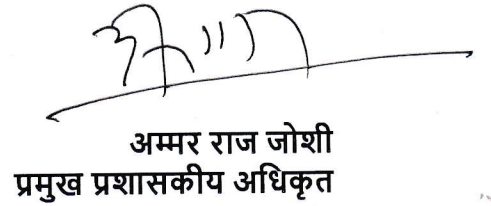 अम्मर राज जोशी
प्रमुख प्रशासकीय अधिकृत